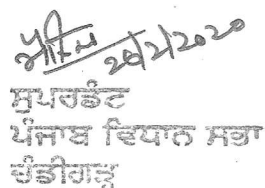 28/2/2020
ਸੁਪਰਡੰਟ
ਪੰਜਾਬ ਵਿਧਾਨ ਸਭਾ
ਚੰਡੀਗੜ੍ਹ